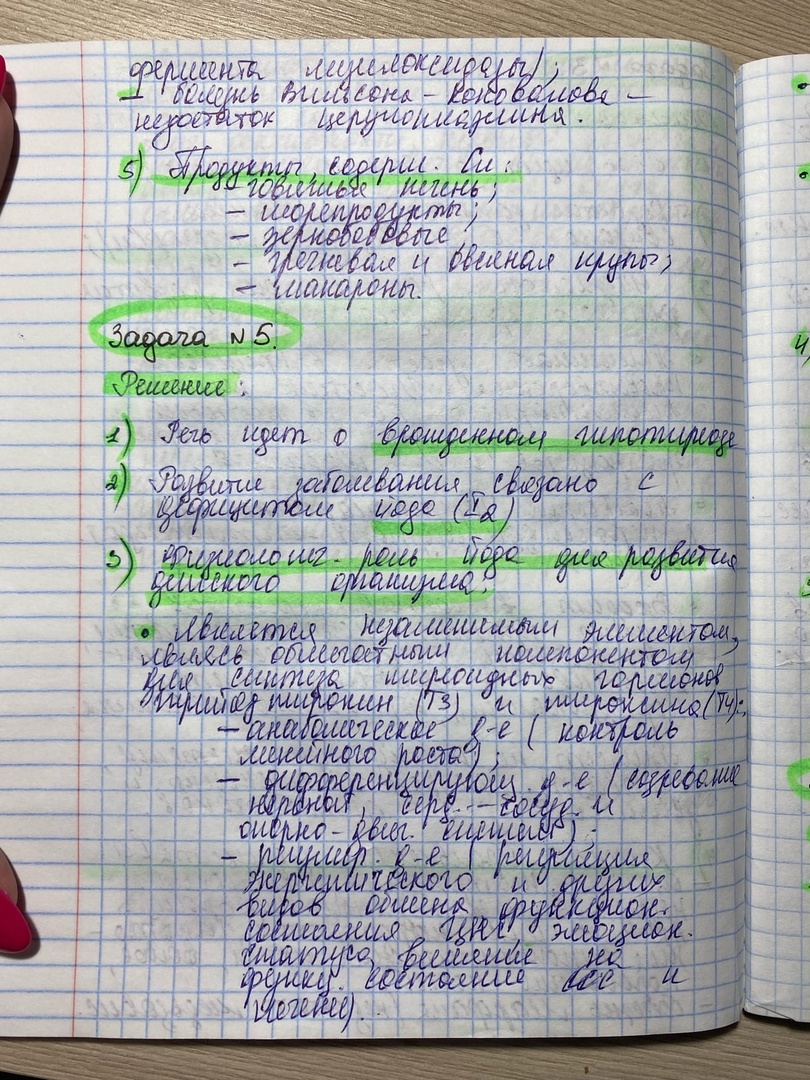 фермента лизилоксидазы);
– болезнь Вильсона – Коновалова –
недостаток церулоплазмина.
5) Продукты, содерж. Cu:
говяжья печень;
– морепродукты;
– зернобобовые
– гречневая и овсяная крупы;
– макароны.
Задача №5.
Решение:
1) Речь идет о врожденном гипотиреозе
2) Развитие заболевания связано с
дефицитом йода (I2)
3) Физиологич. роль йода для развития
детского организма:
• Является незаменимым элементом,
являясь облигатным компонентом
для синтеза тиреоидных гормонов
трийодтиронин (Т3) и тироксина (Т4):
– анаболическое д-е (контроль
линейного роста);
– дифференцирующ. д-е (созревание
нервной, серд.–сосуд. и
опорно-двиг. систем);
– регулир. д-е (регуляция
энергетического и других
видов обмена функцион.
состояния ЦНС, эмоцион.
статуса, влияние на
функц. состояние ССС и
печени).
4)